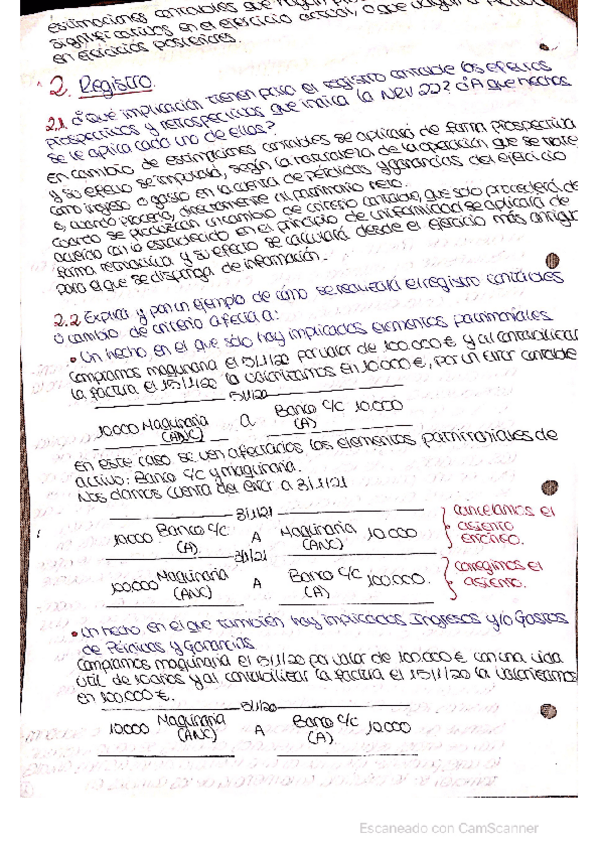 estimaciones contables que hayan
significativos en el ejercicio actual, o que vayan a
en ejercicios posteriores.
2. Registro.
2.1 ¿Qué implicación tienen para el registro contable los efectos
prospectivos y retrospectivos que indica la NRV 22? ¿A qué hechos
se le aplica cada uno de ellos?
En cambio de estimaciones contables se aplicará de forma prospectiva
y su efecto se imputará, según la naturaleza de la operación que se trate
como ingreso o gasto en la cuenta de pérdidas y ganancias del ejercicio
o, cuando proceda, directamente al patrimonio neto.
Cuando se produzcan un cambio de criterio contable, que solo procederá, de
acuerdo con lo establecido en el principio de uniformidad se aplicará de
forma retroactiva y su efecto se calculará desde el ejercicio más antiguo
para el que se disponga de información.
2.2 Explica y pon un ejemplo de cómo se realizará el registro contable
o cambio de criterio afecta a:
• Un hecho en el que sólo hay implicados elementos patrimoniales
Compramos maquinaria el 31/1/20 por valor de 100.000 € y al contabilizar
la factura el 15/1/20 la valorizamos en 10.000 €, por un error contable
31/1/20
10.000 Maquinaria (ANC) a Banco c/c (A) 10.000
En este caso se ven afectados los elementos patrimoniales de
activo: Banco c/c y maquinaria.
Nos damos cuenta del error a 31/1/21
31/1/21
10.000 Banco c/c (A) A Maquinaria (ANC) 10.000
cancelamos el asiento erróneo.
31/1/21
100.000 Maquinaria (ANC) A Banco c/c (A) 100.000.
corregimos el asiento.
• Un hecho en el que también hay implicados Ingresos y/o Gastos
de Pérdidas y Ganancias
Compramos maquinaria el 31/1/20 por valor de 100.000 € con una vida
útil de 10 años y al contabilizar la factura el 15/1/20 la valorizamos
en 100.000 €.
31/1/20
10.000 Maquinaria (ANC) A Banco c/c (A) 10.000
Escaneado con CamScanner